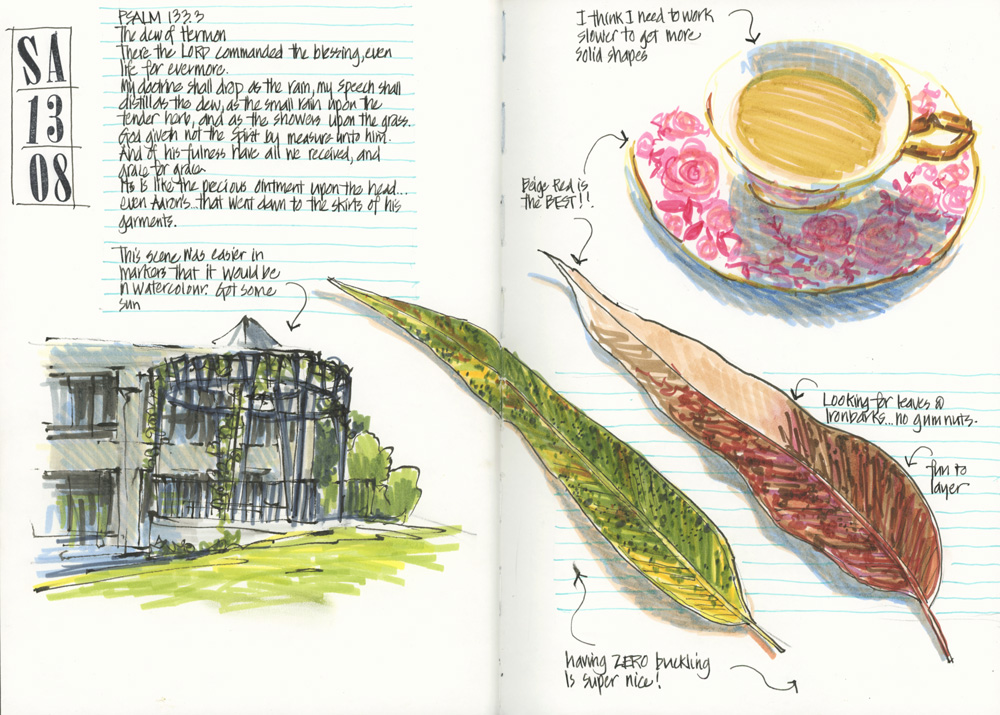 SA
13
08
PSALM 133.3
The dew of Hermon
There the LORD commanded the blessing, even
life for evermore.
My doctrine shall drop as the rain, my speech shall
distill as the dew, as the small rain upon the
tender herb, and as the showers upon the grass.
God giveth not the Spirit by measure unto him.
And of his fulness have all we received, and
grace for grace.
It is like the precious ointment upon the head...
even Aaron's...that went down to the skirts of his
garments.
This scene was easier in
markers that it would be
in watercolour. Got some
sun
I think I need to work
slower to get more
solid shapes
Beige Red is
the BEST!!.
Looking for leaves @
Ironbarks... no gumnuts.
fun to
layer
having ZERO buckling
Is super nice!